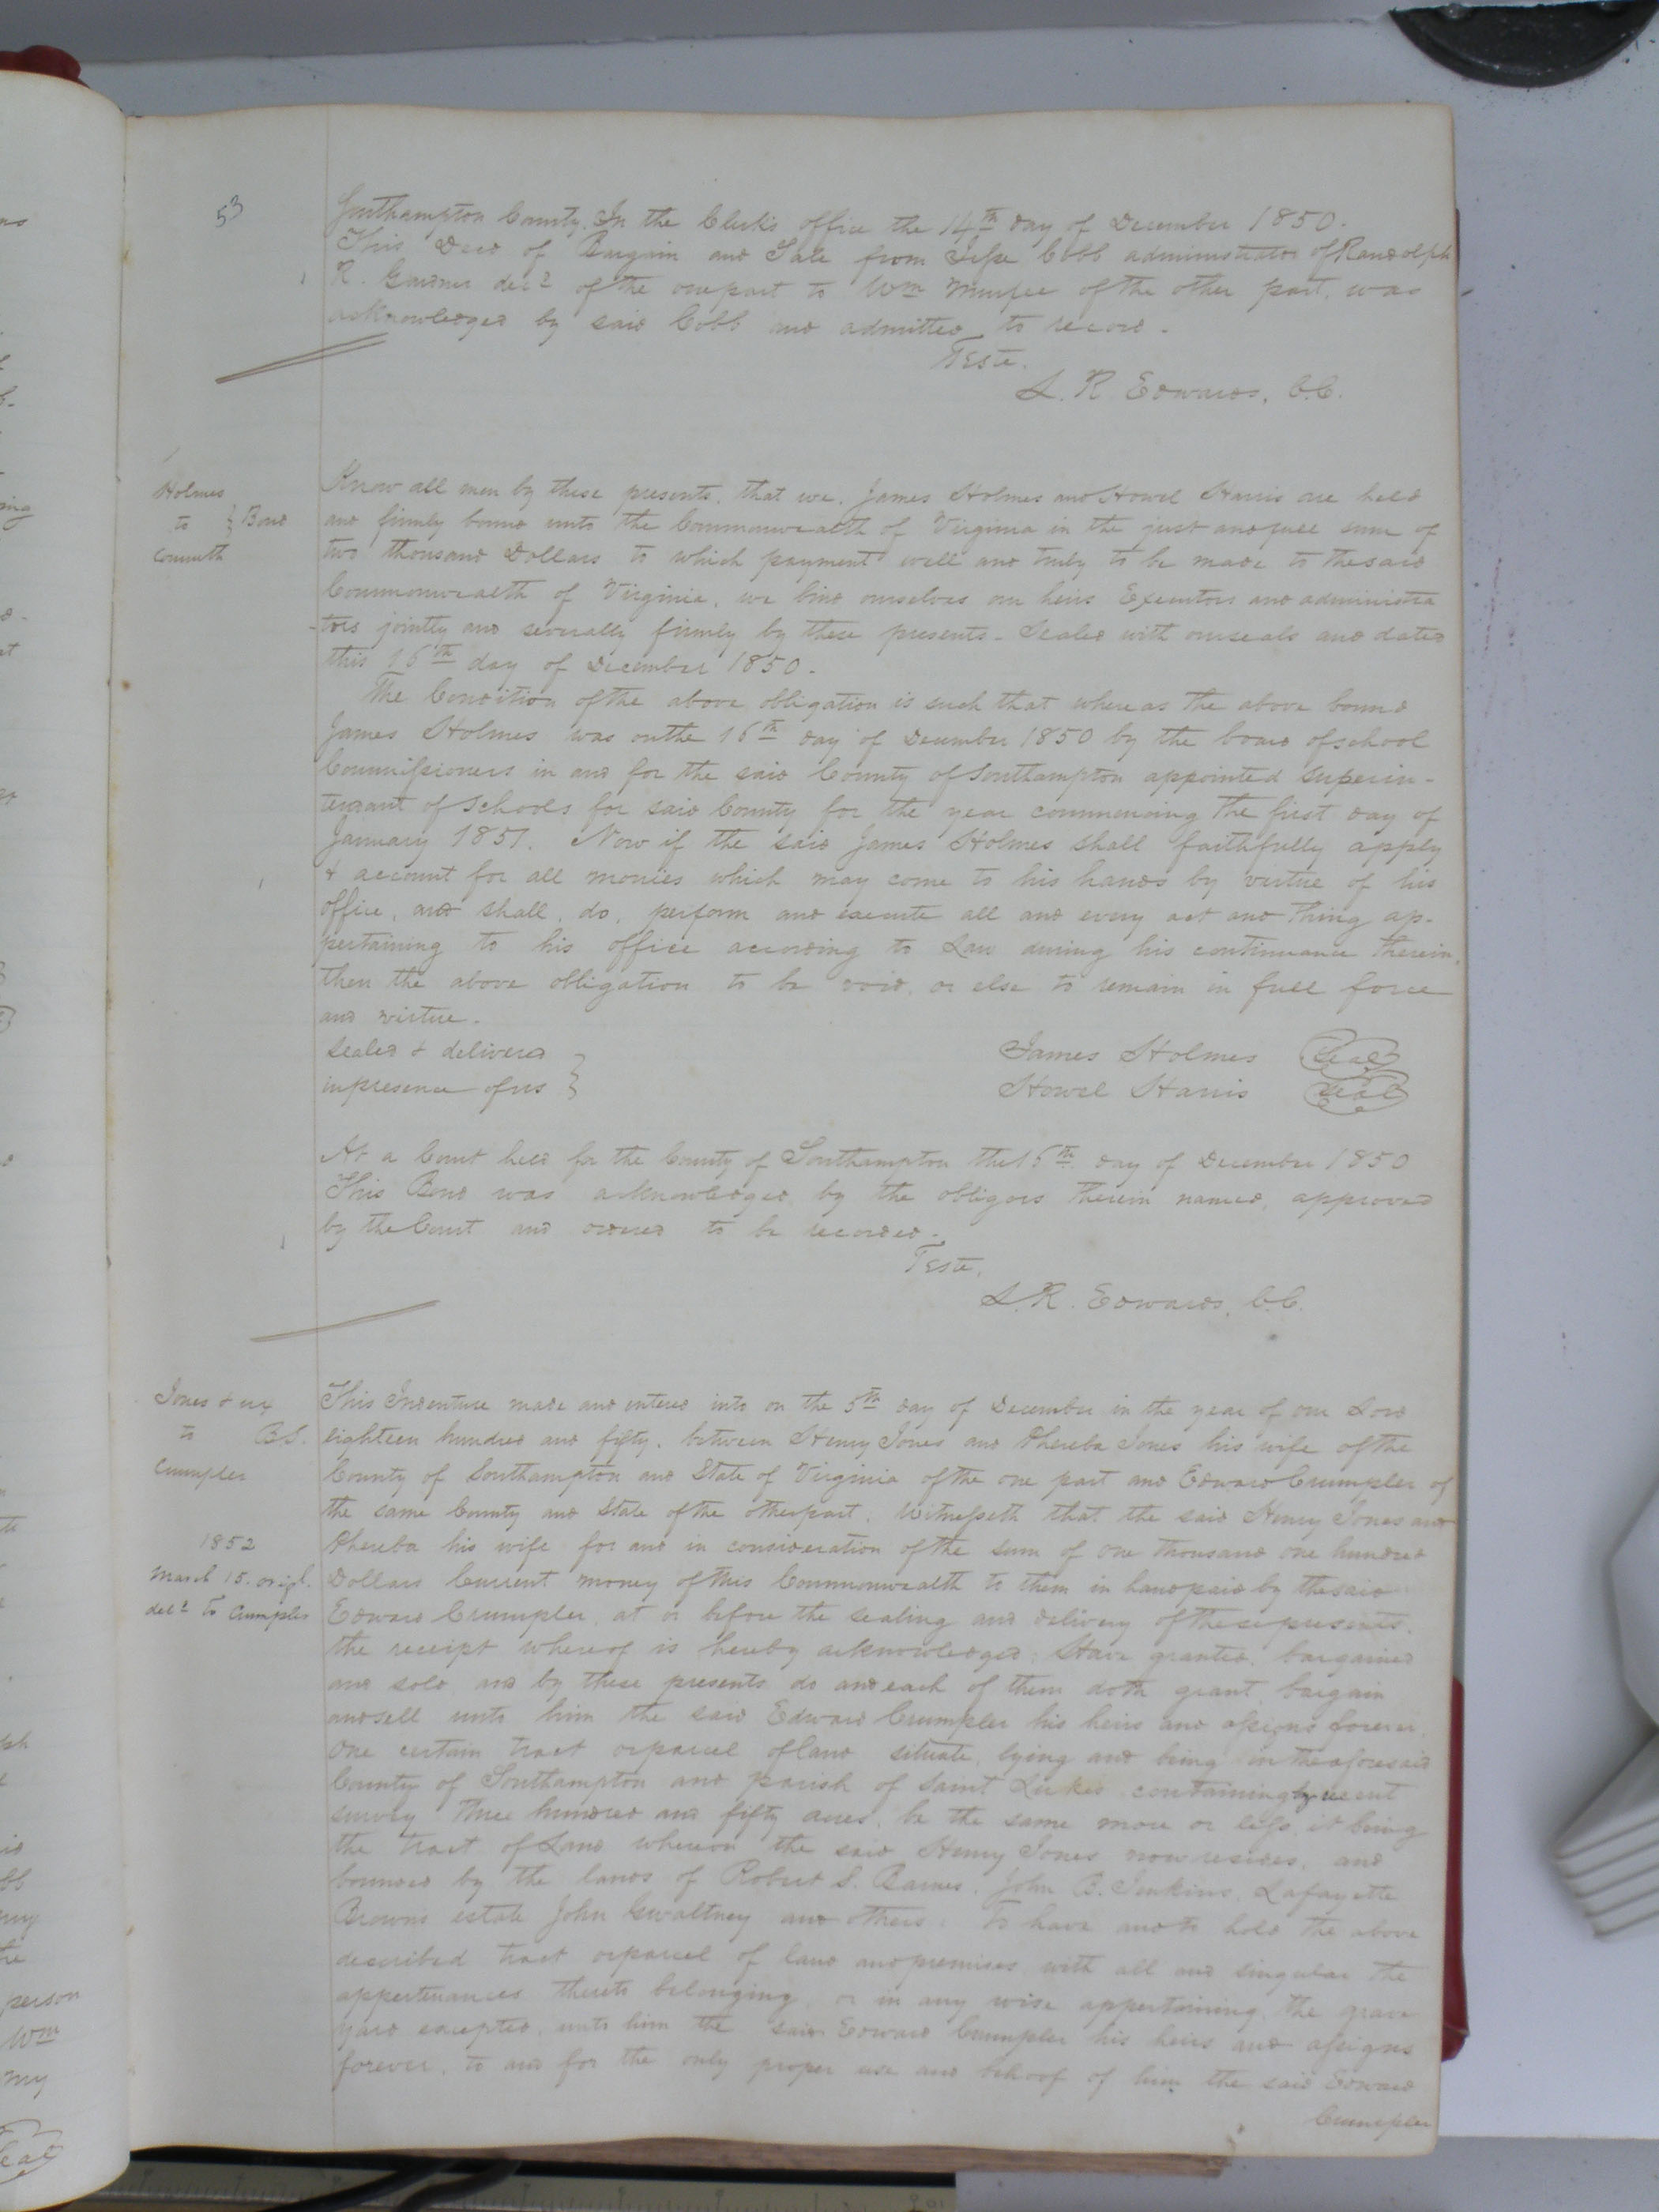 53
Southampton County. In the Clerk's office the 14th day of December 1850.
This Deed of Bargain and Sale from Jesse Cobb administrator of Randolph
R. Gardner decd of the one part to Wm Murfee of the other part, was
acknowledged by said Cobb and admitted to record.
Teste.
L. R. Edwards, C.C.
Holmes
to } Bond
Comwth
Know all men by these presents, that we, James Holmes and Howel Harris are held
and firmly bound unto the Commonwealth of Virginia in the just and full sum of
two thousand Dollars to which payment well and truly to be made to the said
Commonwealth of Virginia, we bind ourselves our heirs Executors and administra
-tors jointly and severally firmly by these presents. Sealed with our seals and dated
this 16th day of December 1850.
The Condition of the above obligation is such that whereas the above bound
James Holmes was on the 16th day of December 1850 by the board of school
Commissioners in and for the said County of Southampton appointed superin-
tendant of schools for said County for the year commencing the first day of
January 1851. Now if the said James Holmes shall faithfully apply
& account for all monies which may come to his hands by virtue of his
office, and shall, do, perform and execute all and every act and thing ap-
pertaining to his office according to Law during his continuance therein,
then the above obligation to be void, or else to remain in full force
and virtue.
Sealed & delivered }
in presence of us }
James Holmes Seal
Howel Harris Seal
At a Court held for the County of Southampton the 16th day of December 1850
This Bond was acknowledged by the obligors therein named, approved
by the Court and ordered to be recorded.
Teste,
L. R. Edwards, C.C.
Jones & ux
to B.S.
Crumpler
1852
March 15. origl.
deld to Crumpler
This Indenture made and entered into on the 5th day of December in the year of our Lord
eighteen hundred and fifty, between Henry Jones and Phereba Jones his wife of the
County of Southampton and State of Virginia of the one part and Edward Crumpler of
the same County and State of the other part, Witnesseth that the said Henry Jones and
Phereba his wife for and in consideration of the sum of one thousand one hundred
Dollars Current money of this Commonwealth to them in hand paid by the said
Edward Crumpler, at or before the sealing and delivery of these presents,
the receipt whereof is hereby acknowledged; Have granted, bargained
and sold, and by these presents do and each of them doth grant, bargain
and sell unto him the said Edward Crumpler his heirs and assigns forever,
One certain tract or parcel of land situate, lying and being in the aforesaid
County of Southampton and parish of Saint Lukes containing by recent
survey three hundred and fifty acres, be the same more or less, it being
the tract of Land whereon the said Henry Jones now resides, and
bounded by the lands of Robert S. Barnes, John B. Jenkins, Lafayette
Browns estate John Gwaltney and others: To have and to hold the above
described tract or parcel of land and premises with all and singular the
appertenances thereto belonging, or in any wise appertaining, the grave
yard excepted, unto him the said Edward Crumpler his heirs and assigns
forever, to and for the only proper use and behoof of him the said Edward
Crumpler